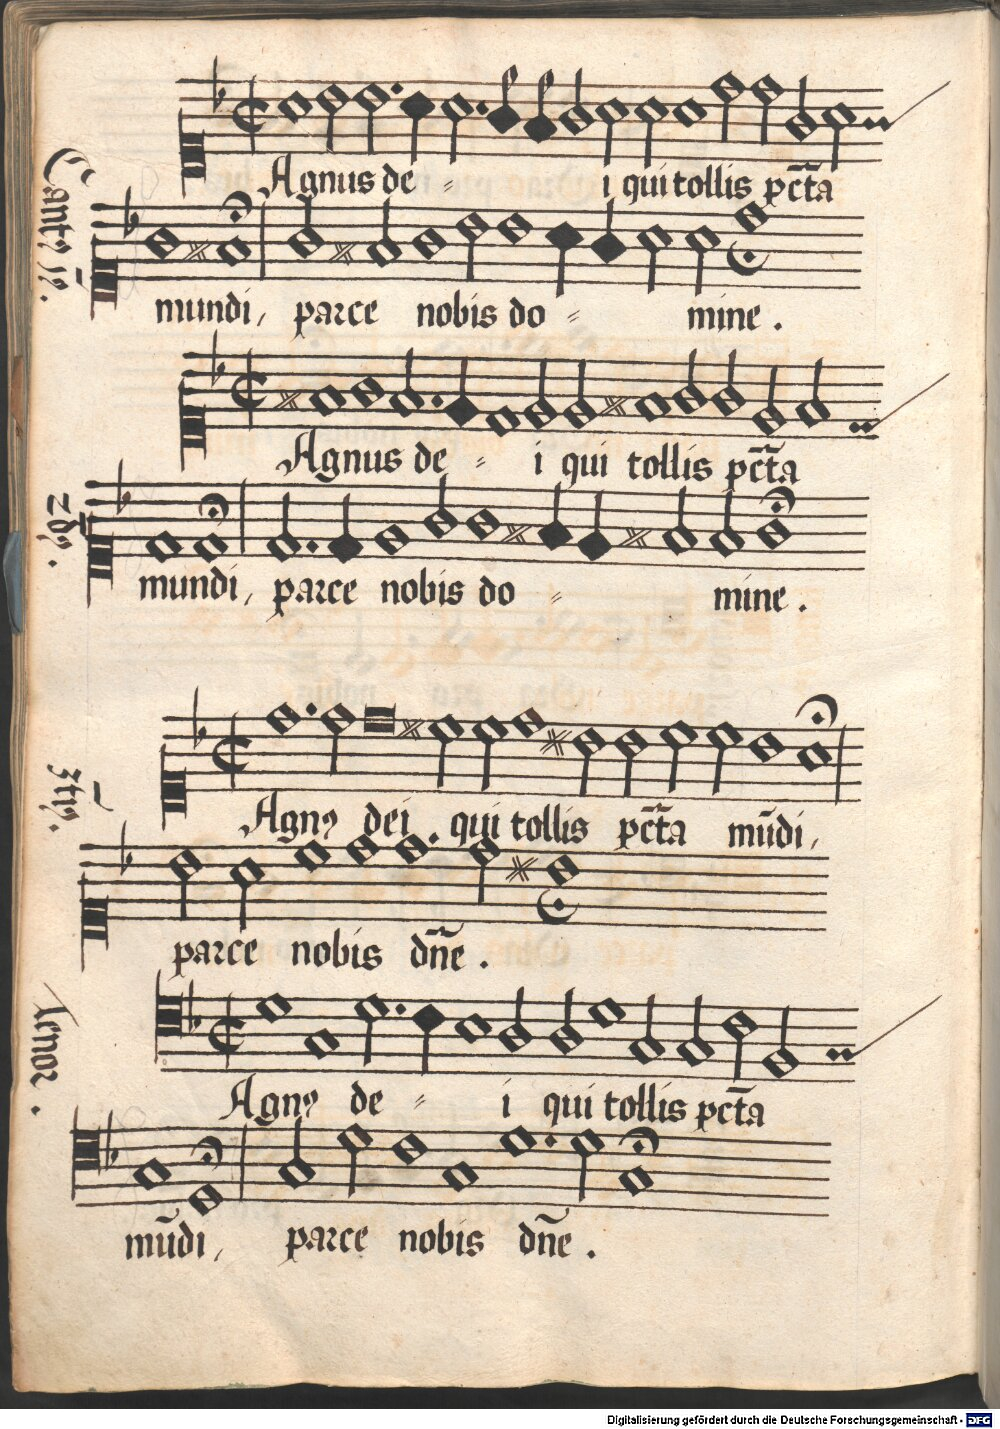 Cantꝰ 1ꝰ.
Agnus de - i qui tollis pc̄ta
mundi, parce nobis do = mine .
2dꝰ.
Agnus de = i qui tollis pc̄ta
mundi, parce nobis do = mine .
3tiꝰ.
Agnꝰ dei . qui tollis pc̄ta mūdi,
parce nobis dn̄e .
Tenor .
Agnꝰ de = i qui tollis pc̄ta
mūdi, parce nobis dn̄e .
Digitalisierung gefördert durch die Deutsche Forschungsgemeinschaft - DFG